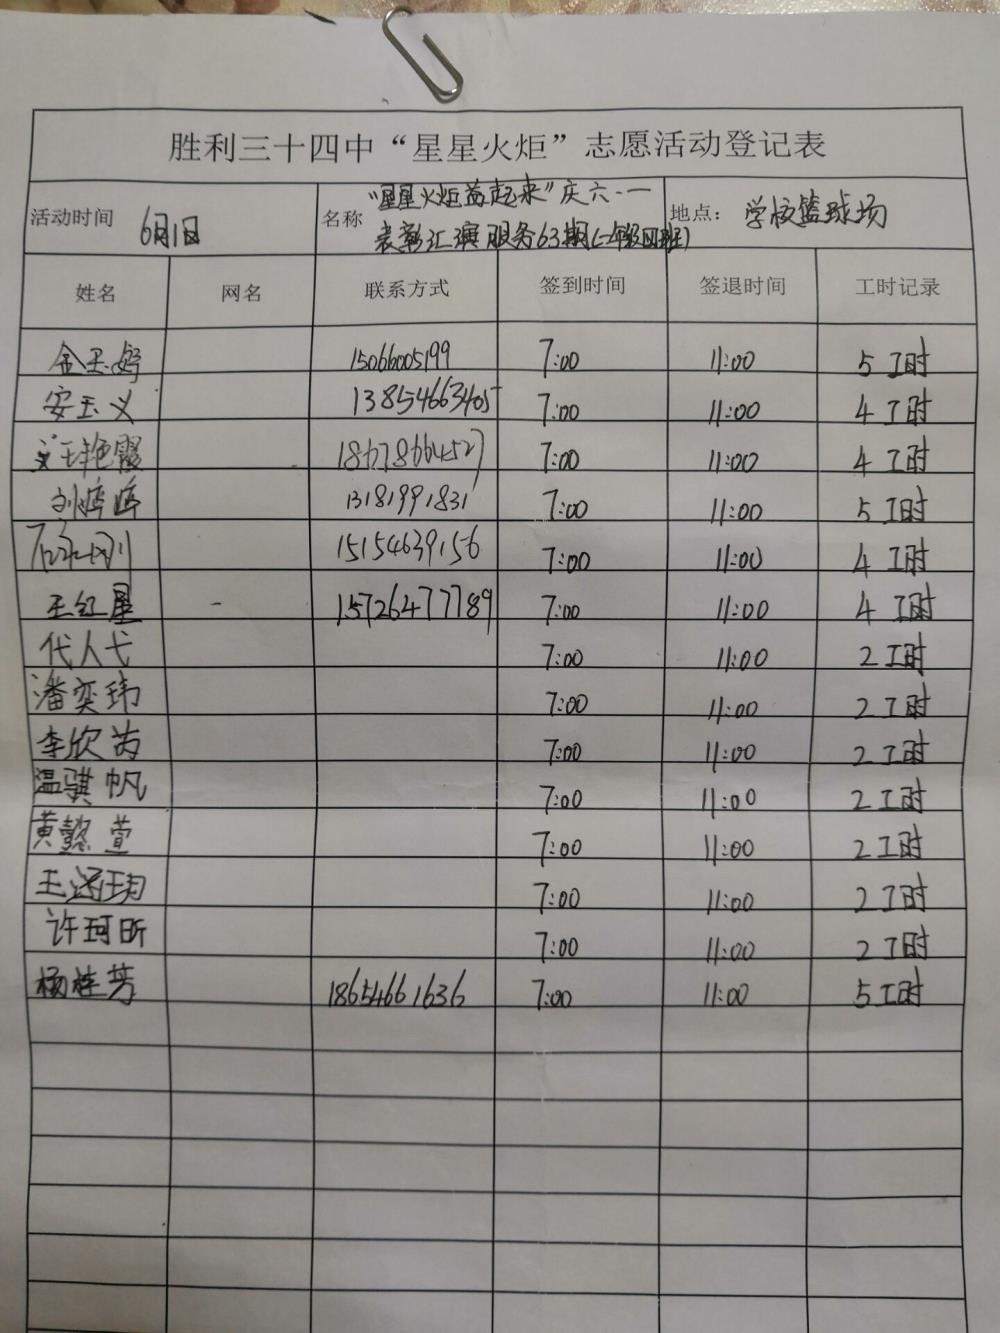 胜利三十四中“星星火炬”志愿活动登记表
活动时间 6月1日 名称 “星星火炬燃起来”庆六·一 表彰汇演服务63期(二年级四班) 地点: 学校篮球场
姓名 网名 联系方式 签到时间 签退时间 工时记录
金玉婷 15066005199 7:00 11:00 5工时
安玉义 13854663405 7:00 11:00 4工时
王艳霞 18678664527 7:00 11:00 4工时
刘婷婷 13181991831 7:00 11:00 5工时
15154639156 7:00 11:00 4工时
王红星 - 15726477789 7:00 11:00 4工时
代人弋 7:00 11:00 2工时
潘奕玮 7:00 11:00 2工时
李欣芮 7:00 11:00 2工时
温骐帆 7:00 11:00 2工时
黄懿萱 7:00 11:00 2工时
王涵玥 7:00 11:00 2工时
许珂昕 7:00 11:00 2工时
杨桂芳 18654661636 7:00 11:00 5工时